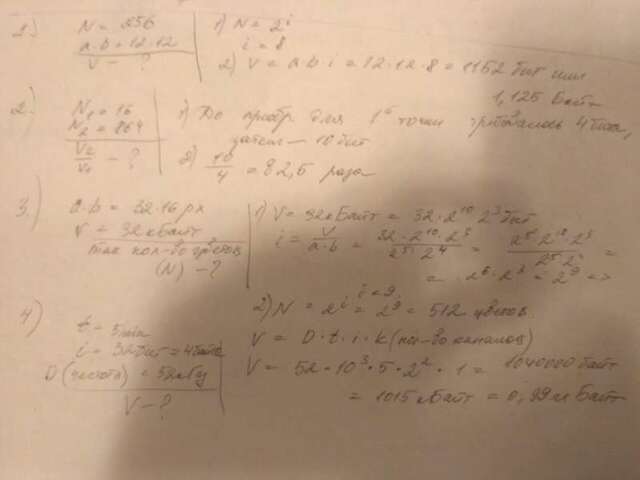 1.) N = 256
a·b = 12·12
V - ?
1) N = 2^i
i = 8
2) V = a·b·i = 12·12·8 = 1152 бит или
1,125 Байт
2.) N₁ = 16
N₂ = 864
V₂/V₁ - ?
1) До для 1ой точки требовалось 4 бита,
затем — 10 бит
2) 10/4 = в 2,5 раза
3.) a·b = 32·16 px
V = 32 кБайт
max кол-во цветов
(N) - ?
1) V = 32 кБайт = 32·2^10·2^3 бит
i = V/a·b = 32·2^10·2^3/2^5·2^4 = 2^5·2^10·2^3/2^5·2^4 =
= 2^6·2^3 = 2^9 =>
i = 9
2) N = 2^i = 2^9 = 512 цветов
4) t = 5
i = 32 бит = 4 байта
D (частота) = 52 кГц
V - ?
V = D·t·i·k (кол-во каналов)
V = 52·10^3·5·2^2·1 = 1040000 байт
= 1015 кБайт = 0,99 М Байт